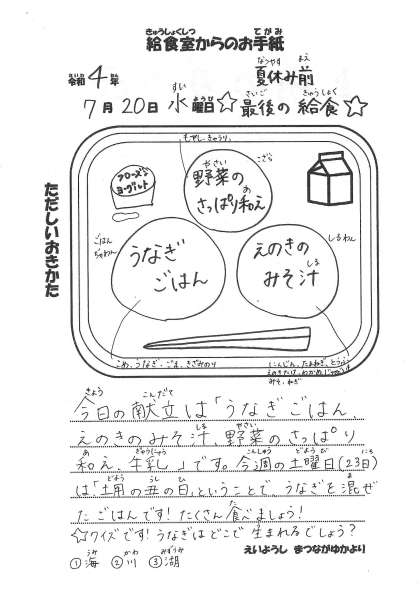 給食室からのお手紙
令和4年
夏休み前
7月20日 水曜日☆最後の給食☆
ただしいおきかた
もやし、きゅうり、
フローズン
ヨーグルト
こざら
野菜の
さっぱり和え
ごはん
ぢゃわん
うなぎ
ごはん
しるわん
えのきの
みそ汁
こめ、うなぎ、ごま、きざみのり
にんじん、たまねぎ、とうふ
えのきたけ、わかめ、じゃがいも
みそ、ねぎ
今日の献立は「うなぎごはん
えのきのみそ汁、野菜のさっぱり
和え、牛乳」です。今週の土曜日(23日)
は「土用の丑の日」ということで、うなぎを混ぜ
たごはんです!たくさん食べましょう!
☆クイズです!うなぎはどこで生まれるでしょう?
①海 ②川 ③湖
えいようし まつながゆかより